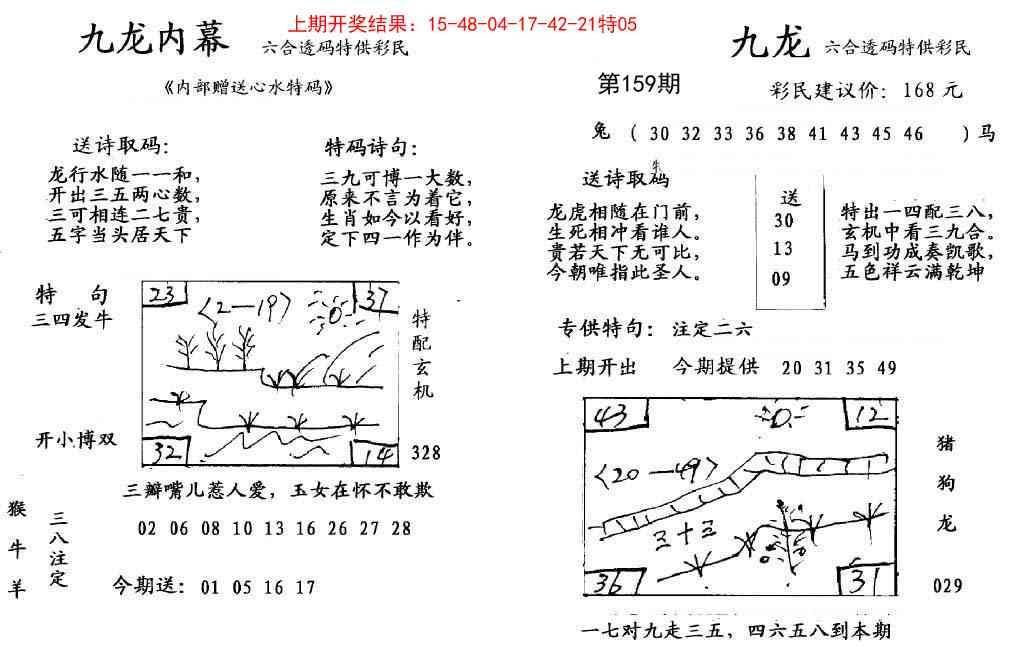 上期开奖结果：15-48-04-17-42-21特05
九龙内幕 六合透码特供彩民
《内部赠送心水特码》
送诗取码：
龙行水随一一和，
开出三五两心数，
三可相连二七贵，
五字当头居天下
特码诗句：
三九可博一大数，
原来不言为着它，
生肖如今以看好，
定下四一作为伴。
特 句
三四发牛
开小博双
23
37
〈2—19〉
32
14
特配玄机
328
三瓣嘴儿惹人爱，玉女在怀不敢欺
猴牛羊
三八注定
02 06 08 10 13 16 26 27 28
今期送：01 05 16 17
九龙 六合透码特供彩民
第159期
彩民建议价：168元
兔 （ 30 32 33 36 38 41 43 45 46 ）马
送诗取码
龙虎相随在门前，
生死相冲看谁人。
贵若天下无可比，
今朝唯指此圣人。
送
30
13
09
特出一四配三八，
玄机中看三九合。
马到功成奏凯歌，
五色祥云满乾坤
专供特句：注定二六
上期开出 今期提供 20 31 35 49
43
12
〈20—49〉
三十三
36
31
猪狗龙
029
一七对九走三五，四六五八到本期